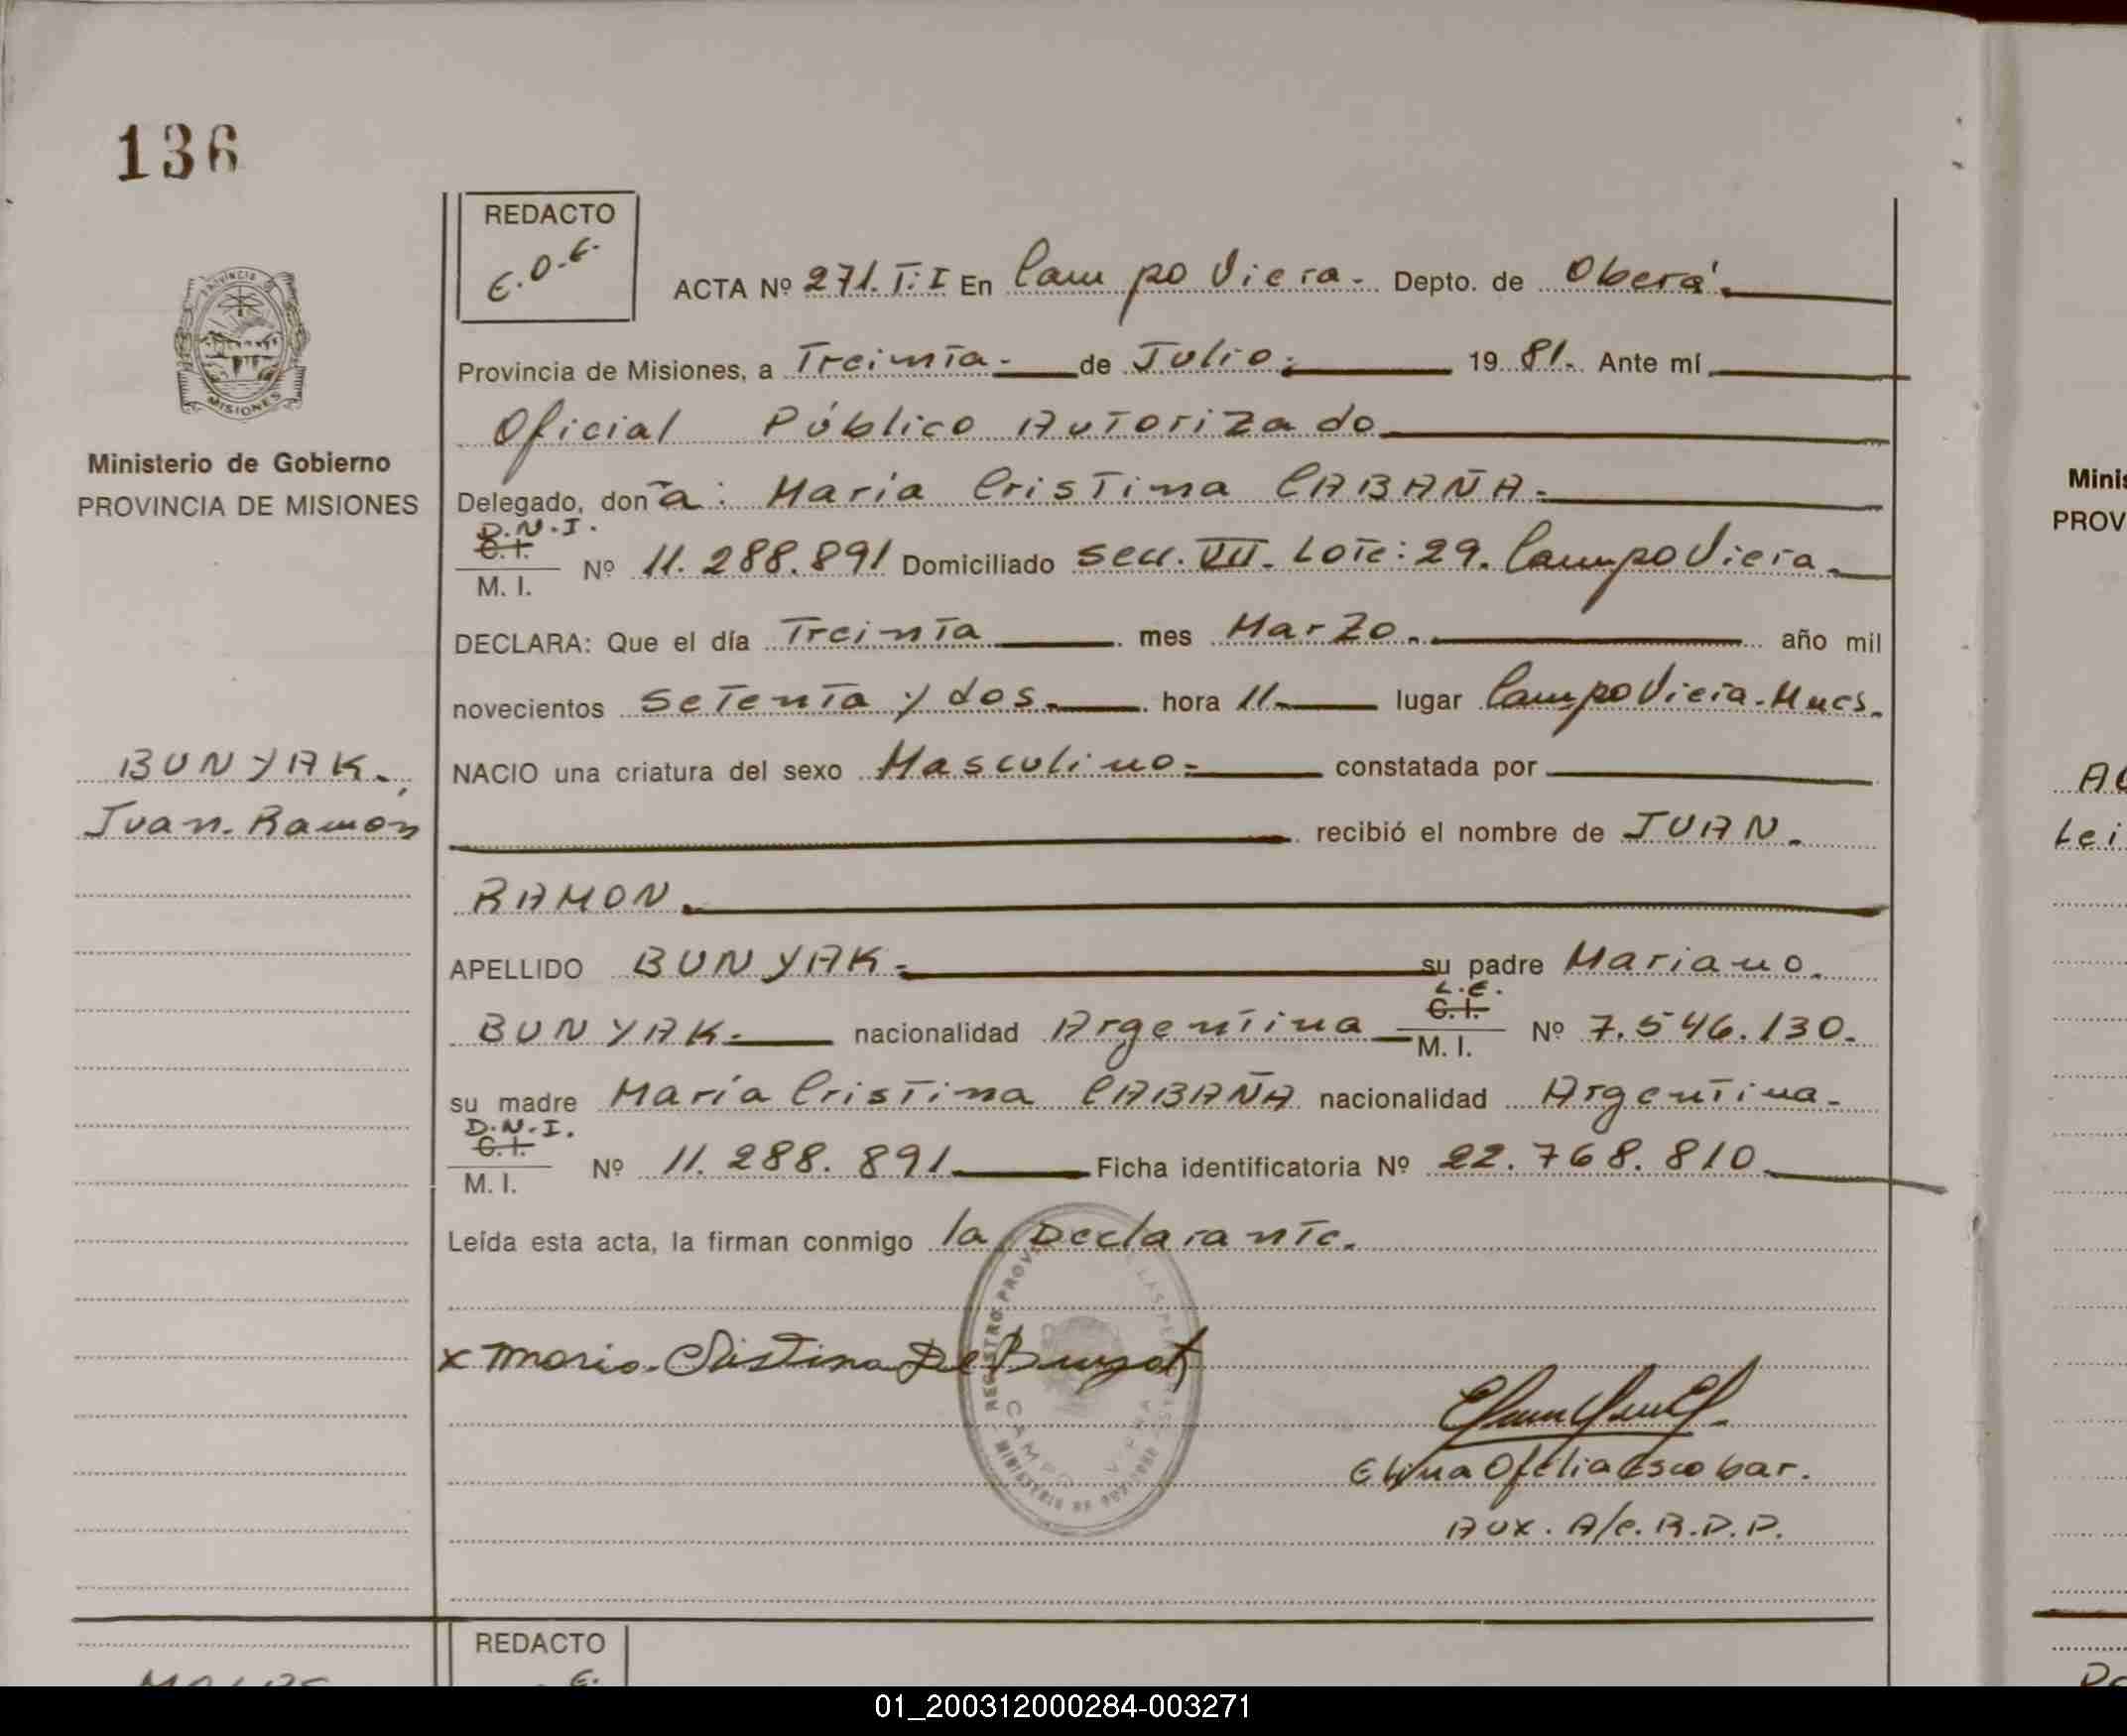 136
REDACTO
E.O.E.
PROVINCIA
MISIONES
Ministerio de Gobierno
PROVINCIA DE MISIONES
ACTA Nº 271. T: I En Campo Viera. Depto. de Oberá.
Provincia de Misiones, a Treinta de Julio. 19 81. Ante mí
Oficial Público Autorizado
Delegado, don a: María Cristina CABAÑA.
D.N.I.
C.I. Nº 11.288.891 Domiciliado Secc. VII. Lote: 29. Campo Viera.
M. I.
DECLARA: Que el día Treinta mes Marzo. año mil
novecientos Setenta y dos. hora 11. lugar Campo Viera. Mnes.
BUNYAK.,
NACIO una criatura del sexo Masculino. constatada por
Juan. Ramón
recibió el nombre de JUAN.
RAMON.
APELLIDO BUNYAK. su padre Mariano.
L.E.
BUNYAK. nacionalidad Argentina C.I. Nº 7.546.130.
M. I.
su madre María Cristina CABAÑA nacionalidad Argentina.
D.N.I.
C.I. Nº 11.288.891 Ficha identificatoria Nº 22.768.810
M. I.
Leída esta acta, la firman conmigo la Declarante.
REGISTRO PROV
CAMPO VIERA
MINISTERIO DE GOBIERNO
x Maria Cristina De
Elina Ofelia Escobar.
Aux. A/c. R.D.P.
REDACTO
E.
Minis
PROV
Lei
01_200312000284-003271